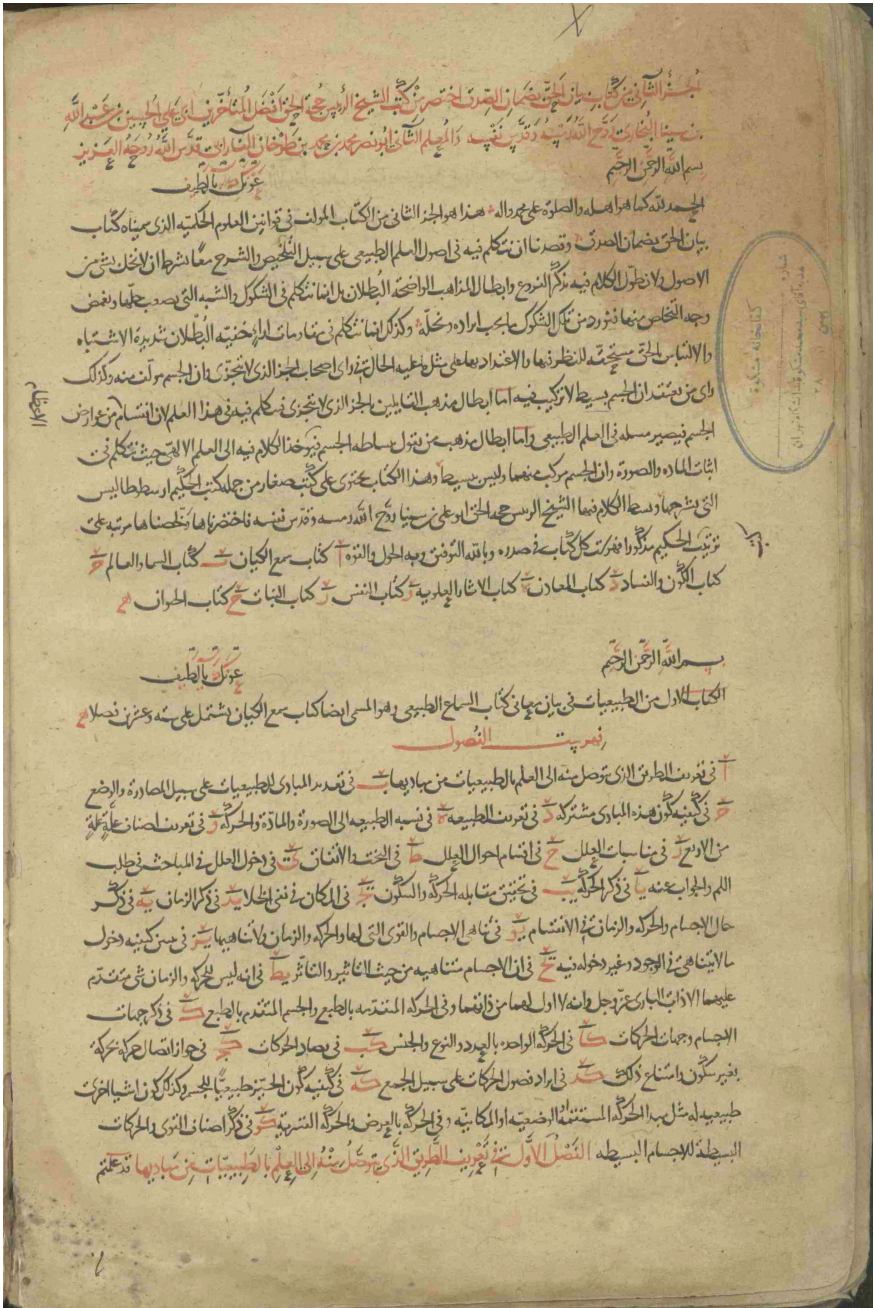 الجزء الثاني من كتاب بيان الحق بضمان الصدق اختصر من كتب الشيخ الرئيس حجة الحق افضل المتأخرين ابي علي الحسين بن عبد الله
بن سينا البخاري روح الله رمسه وقدس نفسه والمعلم الثاني ابو نصر محمد بن محمد بن طرخان الفارابي قدس الله روحه العزيز
بسم الله الرحمن الرحيم
عونك يا لطيف
الحمد لله كما هو اهله والصلوة على محمد واله هذا هو الجزء الثاني من الكتاب المولف في قوانين العلوم الحكميه الذي سميناه كتاب
بيان الحق بضمان الصدق وقصدنا ان نتكلم فيه في اصول العلم الطبيعي على سبيل التلخيص والشرح معا بشرط ان لا نخل بشى من
الاصول ولا نطول الكلام فيه بذكر الفروع وابطال المذاهب الواضحة البطلان بل انما نتكلم في الشكوك والشبه التي يصعب حلها ويغمض
وجه التخلص منها فنورد من تلك الشكوك ما يجب ايراده ونحله وكذلك انما نتكلم في مقاومات اراء خفيه البطلان شديدة الاشتباه
والالتباس الحق مستحقه للنظر فيها والاعتداد بها على مثل ما عليه الحال في راى اصحاب الجزء الذى لا يتجزى وان الجسم مولف منه وكذلك
راى من يعتقد ان الجسم بسيط لا تركيب فيه اما ابطال مذهب القايلين بالجزء الذى لا يتجزى فنتكلم فيه في هذا العلم لان انقسام من عوارض
الانقسام
الجسم فيصير مسله في العلم الطبيعي واما ابطال مذهب من يقول ببساطه الجسم فيوخذ الكلام فيه الى العلم الالهى حيث نتكلم في
اثبات الماده والصورة وان الجسم مركب منهما وليس ببسيط وهذا الكتاب يحتوى على كتب صغار من جمله كتب الحكيم ارسطوطاليس
التي شرحها وبسط الكلام فيها الشيخ الرىس حجه الحق ابو على بن سينا روح الله رمسه وقدس نفسه فاختصرناها ولخصناها مرتبه على
ترتيب الحكيم مذكورا فهرست كل كتاب في صدره وبالله التوفيق وبه الحول والقوه ا كتاب سمع الكيان ب كتاب السما والعالم ج
كتاب الكون والفساد د كتاب المعادن ه كتاب الاثار العلويه و كتاب النفس ز كتاب النبات ح كتاب الحيوان
بسم الله الرحمن الرحيم
عونك يا لطيف
الكتاب الاول من الطبيعيات في بيان معاني كتاب السماع الطبيعي وهو المسمى ايضا كتاب سمع الكيان يشتمل على سته وعشرين فصلا
فهرست الفصول
ا في تعريف الطريق الذي يتوصل منه الى العلم بالطبيعيات من مباديها ب في تعديد المبادى للطبيعيات على سبيل المصادرة والوضع
ج في كيفيه كون هذه المبادى مشتركه د في تعريف الطبيعه ه في نسبه الطبيعه الى الصورة والمادة والحركه و في تعريف اصناف علة علة
من الاربع ز في مناسبات العلل ح في اقسام احوال العلل ط في البخت والاتفاق ى في دخول العلل في المباحث في طلب
اللم والجواب عنه يا في ذكر الحركه يب في تحقيق مقابله الحركه والسكون يج في المكان في نفى الخلا يد في ذكر الزمان يه في ذكر
حال الاجسام والحركه والزمان في الانقسام يو في تناهى الاجسام والقوى التي لها والحركه والزمان ولا تناهيها يز في تبين كيفيه دخول
ما لا يتناهى في الوجود وغير دخوله فيه يح في ان الاجسام متناهيه من حيث التاثير والتاثر يط في انه ليس للحركه والزمان شى متقدم
عليهما الا ذات البارى عز وجل وانه لا اول لهما من ذاتهما وفي الحركه المتقدمه بالطبع والجسم المتقدم بالطبع ك في ذكر جهات
الاجسام وجهات الحركات كا في الحركه الواحده بالعدد والنوع والجنس كب في تضاد الحركات كج في جواز اتصال حركه بحركة
بغير سكون وامتناع ذلك كد في ايراد فصول الحركات على سبيل الجمع كه في كيفيه كون الحيز طبيعيا للجسم وكذلك كون اشيا اخرى
طبيعيه له مثل مبدا الحركه المستقيمة الوضعيه او المكانيه وفي الحركه بالعرض والحركه القسريه كو في ذكر اصناف القوى والحركات
البسيطة للاجسام البسيطه الفصل الاول في تعريف الطريق الذي يتوصل منه الى العلم بالطبيعيات من مباديها قد علمتم